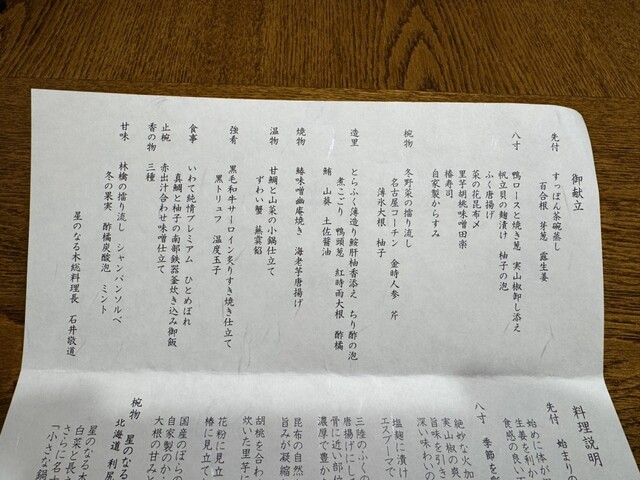 御献立
先付　すっぽん茶碗蒸し
百合根　芽葱　露生姜
八寸　鴨ロースと焼き葱　実山椒卸し添え
帆立貝の麹漬け　柚子の泡
ふぐ唐揚げ
菜の花昆布〆
里芋胡桃味噌田楽
椿寿司
自家製からすみ
椀物　冬野菜の擂り流し
名古屋コーチン　金時人参　芹
薄氷大根　柚子
造里　とらふく薄造り鮟肝柚香添え　ちり酢の泡
煮こごり　鴨頭葱　紅時雨大根　酢橘
鮪　山葵　土佐醤油
焼物　鰆味噌幽庵焼き　海老芋唐揚げ
温物　甘鯛と山菜の小鍋仕立て
ずわい蟹　蕪霙餡
強肴　黒毛和牛サーロイン炙りすき焼き仕立て
黒トリュフ　温度玉子
食事　いわて純情プレミアム　ひとめぼれ
真鯛と柚子の南部鉄器釜炊き込み御飯
止椀　赤出汁合わせ味噌仕立て
香の物　三種
甘味　林檎の擂り流し　シャンパンソルベ
冬の果実　酢橘炭酸泡　ミント
星のなる木総料理長　石井敬道
料理説明
先付　始まりの
始めに体が
生姜を利か
食感の良い
八寸　季節を
絶妙な火加
実山椒の爽
旨味を引き
深い味わいの
塩麹に漬け
エスプーマで
三陸のふぐの
唐揚げにして
骨に近い部位
濃厚で豊か
昆布の自然
旨みが凝縮
胡桃を合わ
炊いた里芋に
花粉に見立
椿に見立て
国産のぼらの
自家製のか
大根の甘みと
椀物　星のなる
北海道　利尻
星のなる木
白菜と長ネ
さらに名古
「小さな鍋